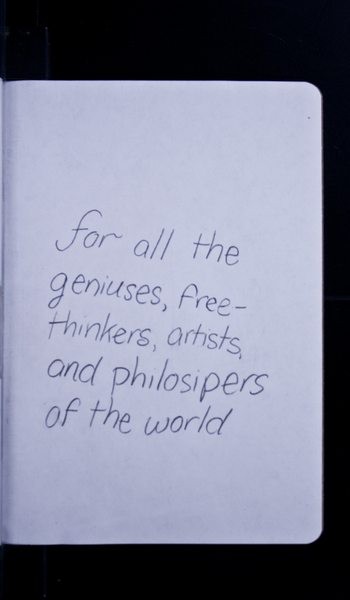 for all the
geniuses, free-
thinkers, artists,
and philosipers
of the world